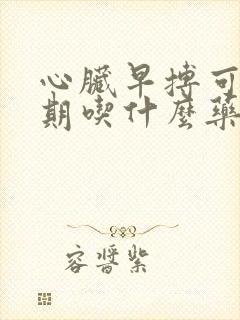 心臟早搏可
期喫什麼藥
容醬紫